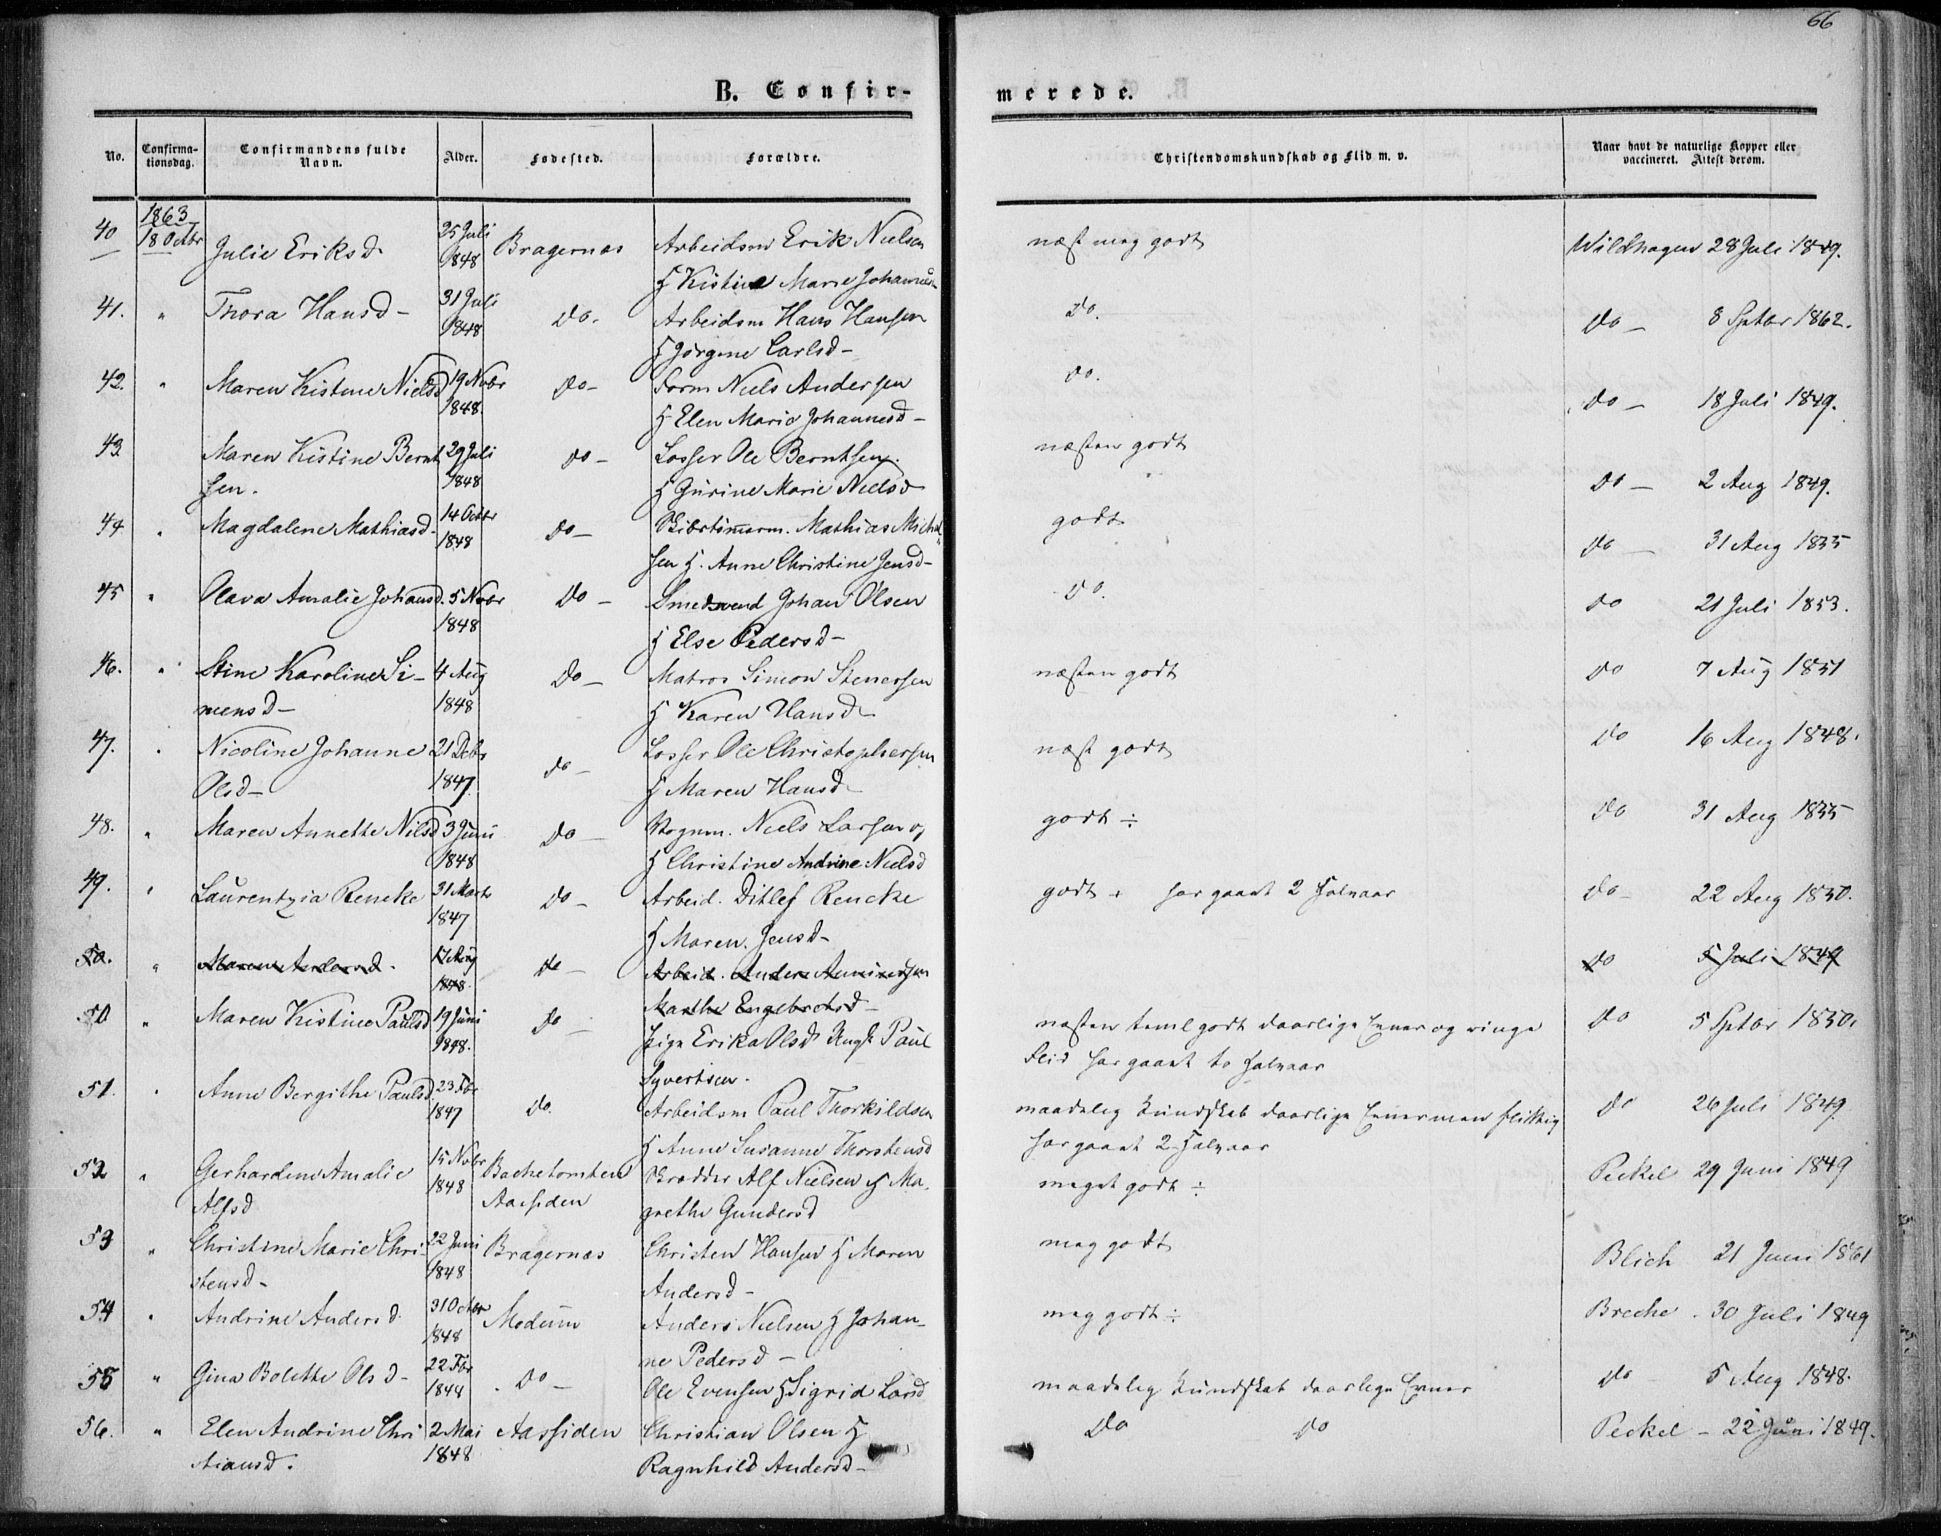 66
B. Confirmerede.
No. Confirmationsdag. Confirmandens fulde Navn. Alder. Fødested. Forældre. Christendomskundskab og Flid m. v. Naar havt de naturlige Kopper eller vaccineret. Attest derom.
1863
40 18 Octbr Julie Eriksd 25 Juli 1848 Bragernæs Arbeidsm Erik Nielsen H Kistine Marie Johannesd næst meg godt Wildhagen 28 Juli 1849.
41. " Thora Hansd- 31 Juli 1848 Do. Arbeidsm Hans Hansen H Jørgine Carlsd- Do. Do- 8 Sptbr 1862.
42. " Maren Kistine Nielsd 19 Novbr 1848. Do- Form Niels Andersen H Elen Marie Johannesd- do. Do- 18 Juli 1849.
43 Maren Kistine Berntsen. 29 Juli 1848 Do- Losser Ole Berntsen. H Gurine Marie Nielsd næsten godt Do- 2 Aug 1849.
44 " Magdalene Mathiasd 14 Octbr 1848 Do- Skibstømmerm. Mathias Michelsen H. Anne Christine Jensd- godt Do- 31 Aug 1855
45 " Olava Amalie Johansd. 5 Novbr 1848 Do- Smedsvend Johan Olsen H Else Pedersd- Do. Do 21 Juli 1853.
46. " Stine Karoline Simensd- 4 Aug 1848 Do- Matros Simon Stenersen H Karen Hansd- næsten godt Do 7 Aug 1851
47. " Nicoline Johanne Olsd- 21 Debr 1847 do- Losser Ole Christophersen H Maren Hansd- næst godt Do 16 Aug 1848.
48. " Maren Annette Nilsd 3 Juni 1848 Do- Vognm. Niels Larsen og H Christine Andrine Nielsd godt ÷ Do 31 Aug 1855
49. " Laurentzia Rencke 31 Marts 1847 Do- Arbeid. Ditlef Rencke H Maren Jensd- godt ÷ har gaaet 2 Halvaar Do- 22 Aug 1850.
50. " Maren Andersd. 17 Aug 1848. do- Arbeid. Anders Marthe Engebretsd- do 5 Juli 1849
50 " Maren Kistine Paulsd 19 Juni 1848. Do- Pige Erika Olsd Ungk Paul Syvertsen. næsten teml godt daarlige Evner og ringe Flid har gaaet to Halvaar Do 5 Sptbr 1850.
51. " Anne Bergithe Paulsd. 23 Fbr 1847 do. Arbeidsm Paul Thorkildsen H Anne Susanne Thorstensd maadelig Kundskab daarlige Evner men flittig har gaaet 2 Halvaar Do 26 Juli 1849.
52 " Gerhardine Amalie Alfsd 15 Novbr 1848 Bachetomten Aassiden Skrædder Alf Nielsen H Magrethe Gundersd meget godt ÷ Peckel 29 Juni 1849
53 " Christine Marie Christensd- 22 Juni 1848 Bragernæs Christen Hansen H Maren Andersd- meg godt Blich 21 Juni 1861
54 " Andrine Andersd 31 Octbr 1848 Modum Anders Nielsen H Johanne Pedersd- meg godt ÷ Breche. 30 Juli 1849
55 " Gina Bolette Olsd- 22 Fbr 1844 Do- Ole Evensen H Sigrid Larsd maadelig Kundskab daarlige Evner do 5 Aug 1848.
56. " Elen Andrine Christiansd. 2 Mai 1848 Aassiden Christian Olsen H Ragnhild Andersd- Do Do Peckel- 22 Juni 1849.